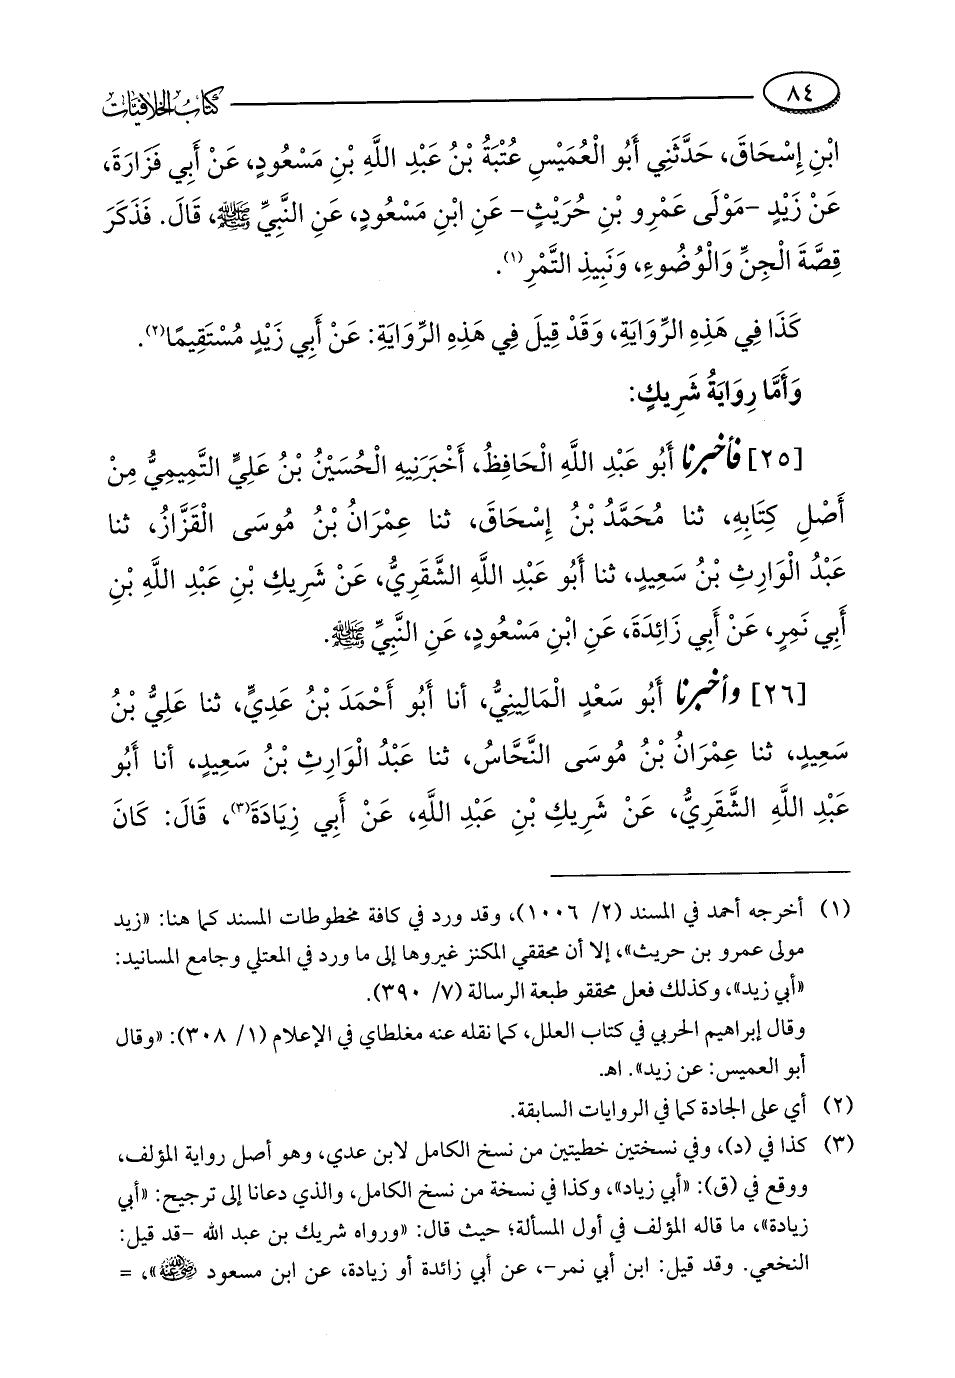 ٨٤ كتاب الخلافيات
ابْنِ إِسْحَاقَ، حَدَّثَنِي أَبُو الْعُمَيْسِ عُتْبَةُ بْنُ عَبْدِ اللَّهِ بْنِ مَسْعُودٍ، عَنْ أَبِي فَزَارَةَ،
عَنْ زَيْدٍ -مَوْلَى عَمْرِو بْنِ حُرَيْثٍ- عَنِ ابْنِ مَسْعُودٍ، عَنِ النَّبِيِّ ﷺ، قَالَ. فَذَكَرَ
قِصَّةَ الْجِنِّ وَالْوُضُوءِ، وَنَبِيذِ التَّمْرِ(١).
كَذَا فِي هَذِهِ الرِّوَايَةِ، وَقَدْ قِيلَ فِي هَذِهِ الرِّوَايَةِ: عَنْ أَبِي زَيْدٍ مُسْتَقِيمًا(٢).
وَأَمَّا رِوَايَةُ شَرِيكٍ:
[٢٥] فأخبرنا أَبُو عَبْدِ اللَّهِ الْحَافِظُ، أَخْبَرَنِيهِ الْحُسَيْنُ بْنُ عَلِيٍّ التَّمِيمِيُّ مِنْ
أَصْلِ كِتَابِهِ، ثنا مُحَمَّدُ بْنُ إِسْحَاقَ، ثنا عِمْرَانُ بْنُ مُوسَى الْقَزَّازُ، ثنا
عَبْدُ الْوَارِثِ بْنُ سَعِيدٍ، ثنا أَبُو عَبْدِ اللَّهِ الشَّقَرِيُّ، عَنْ شَرِيكِ بْنِ عَبْدِ اللَّهِ بْنِ
أَبِي نَمِرٍ، عَنْ أَبِي زَائِدَةَ، عَنِ ابْنِ مَسْعُودٍ، عَنِ النَّبِيِّ ﷺ.
[٢٦] وأخبرنا أَبُو سَعْدٍ الْمَالِينِيُّ، أنا أَبُو أَحْمَدَ بْنُ عَدِيٍّ، ثنا عَلِيُّ بْنُ
سَعِيدٍ، ثنا عِمْرَانُ بْنُ مُوسَى النَّحَّاسُ، ثنا عَبْدُ الْوَارِثِ بْنُ سَعِيدٍ، أنا أَبُو
عَبْدِ اللَّهِ الشَّقَرِيُّ، عَنْ شَرِيكِ بْنِ عَبْدِ اللَّهِ، عَنْ أَبِي زِيَادَةَ(٣)، قَالَ: كَانَ
(١) أخرجه أحمد في المسند (٢/ ١٠٠٦)، وقد ورد في كافة مخطوطات المسند كما هنا: «زيد
مولى عمرو بن حريث»، إلا أن محققي المكنز غيروها إلى ما ورد في المعتلي وجامع المسانيد:
«أبي زيد»، وكذلك فعل محققو طبعة الرسالة (٧/ ٣٩٠).
وقال إبراهيم الحربي في كتاب العلل، كما نقله عنه مغلطاي في الإعلام (١/ ٣٠٨): «وقال
أبو العميس: عن زيد». اهـ.
(٢) أي على الجادة كما في الروايات السابقة.
(٣) كذا في (د)، وفي نسختين خطيتين من نسخ الكامل لابن عدي، وهو أصل رواية المؤلف،
ووقع في (ق): «أبي زياد»، وكذا في نسخة من نسخ الكامل، والذي دعانا إلى ترجيح: «أبي
زيادة»، ما قاله المؤلف في أول المسألة؛ حيث قال: «ورواه شريك بن عبد الله -قد قيل:
النخعي. وقد قيل: ابن أبي نمر-، عن أبي زائدة أو زيادة، عن ابن مسعود رضي الله عنه»، =